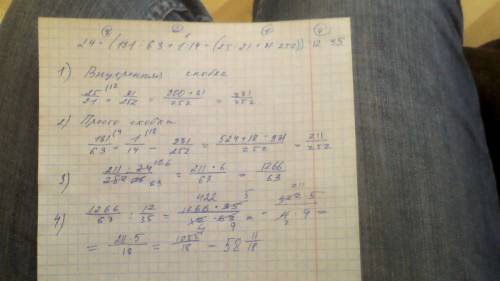 ③ ② ① ④
24 · (131 : 63 + 1 : 14 - (25 : 21 + 31 : 252)) : 12 : 35
1) Внутренняя скобка
25/21 + 31/252 = (300 + 31)/252 = 331/252
2) Просто скобка
131/63 + 1/14 - 331/252 = (524 + 18 - 331)/252 = 211/252
3) (211 · 24)/252 = (211 · 6)/63 = 1266/63
4) 1266/63 : 12/35 = (1266 · 35)/(12 · 63) = (422 · 5)/(4 · 9) =
= (211 · 5)/18 = 1055/18 = 58 11/18